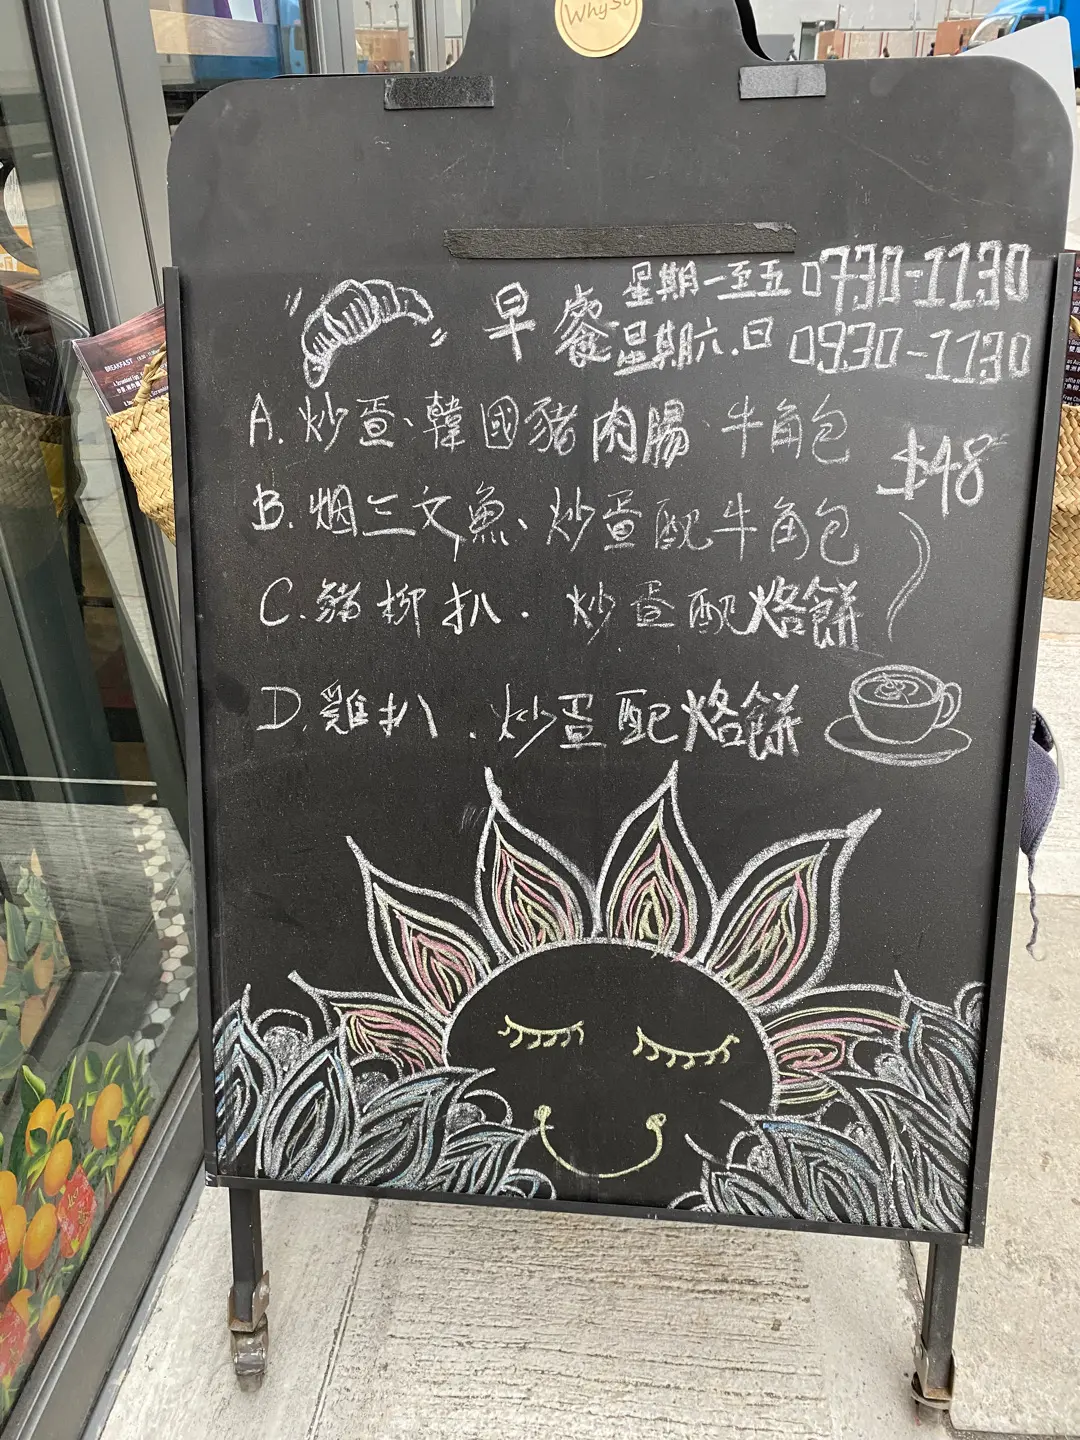 WhySo
早餐 星期一至五 0730-1130
星期六.日 0930-1130
A. 炒蛋、韓國豬肉腸 牛角包
$48
B. 烟三文魚、炒蛋配牛角包
C. 豬柳扒. 炒蛋配烙餅
D. 雞扒. 炒蛋配烙餅
BREAKFAST